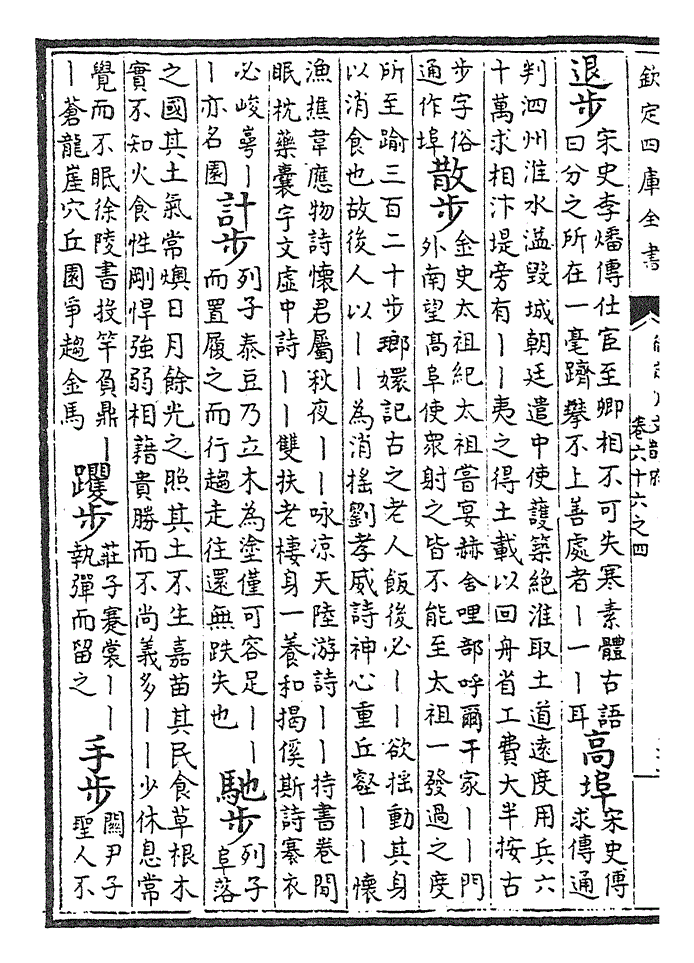 欽定四庫全書
卷六十六之四
退步
宋史李燔傳仕宦至卿相不可失寒素體古語
曰分之所在一毫躋攀不上善處者丨一丨耳
高埠
宋史傅
求傳通
判泗州淮水溢毀城朝廷遣中使護築絕淮取土道遠度用兵六
十萬求相汴堤旁有丨丨夷之得土載以回舟省工費大半按古
步字俗
通作埠
散步
金史太祖紀太祖嘗宴赫舍哩部呼爾干家丨丨門
外南望高阜使衆射之皆不能至太祖一發過之度
所至踰三百二十步瑯嬛記古之老人飯後必丨丨欲揺動其身
以消食也故後人以丨丨為消揺劉孝威詩神心重丘壑丨丨懷
漁樵韋應物詩懷君屬秋夜丨丨咏凉天陸游詩丨丨持書卷閒
眠枕藥囊宇文虛中詩丨丨雙扶老棲身一養和揭傒斯詩褰衣
必峻丨
丨亦名園
計步
列子泰豆乃立木為塗僅可容足丨丨
而置履之而行趨走往還無跌失也
馳步
列子
阜落
之國其土氣常燠日月餘光之照其土不生嘉苗其民食草根木
實不知火食性剛悍強弱相藉貴勝而不尚義多丨丨少休息常
覺而不眠徐陵書投竿負鼎丨
丨蒼龍崖穴丘園爭趨金馬
躩步
莊子蹇裳丨丨
執彈而留之
手步
關尹子
聖人不